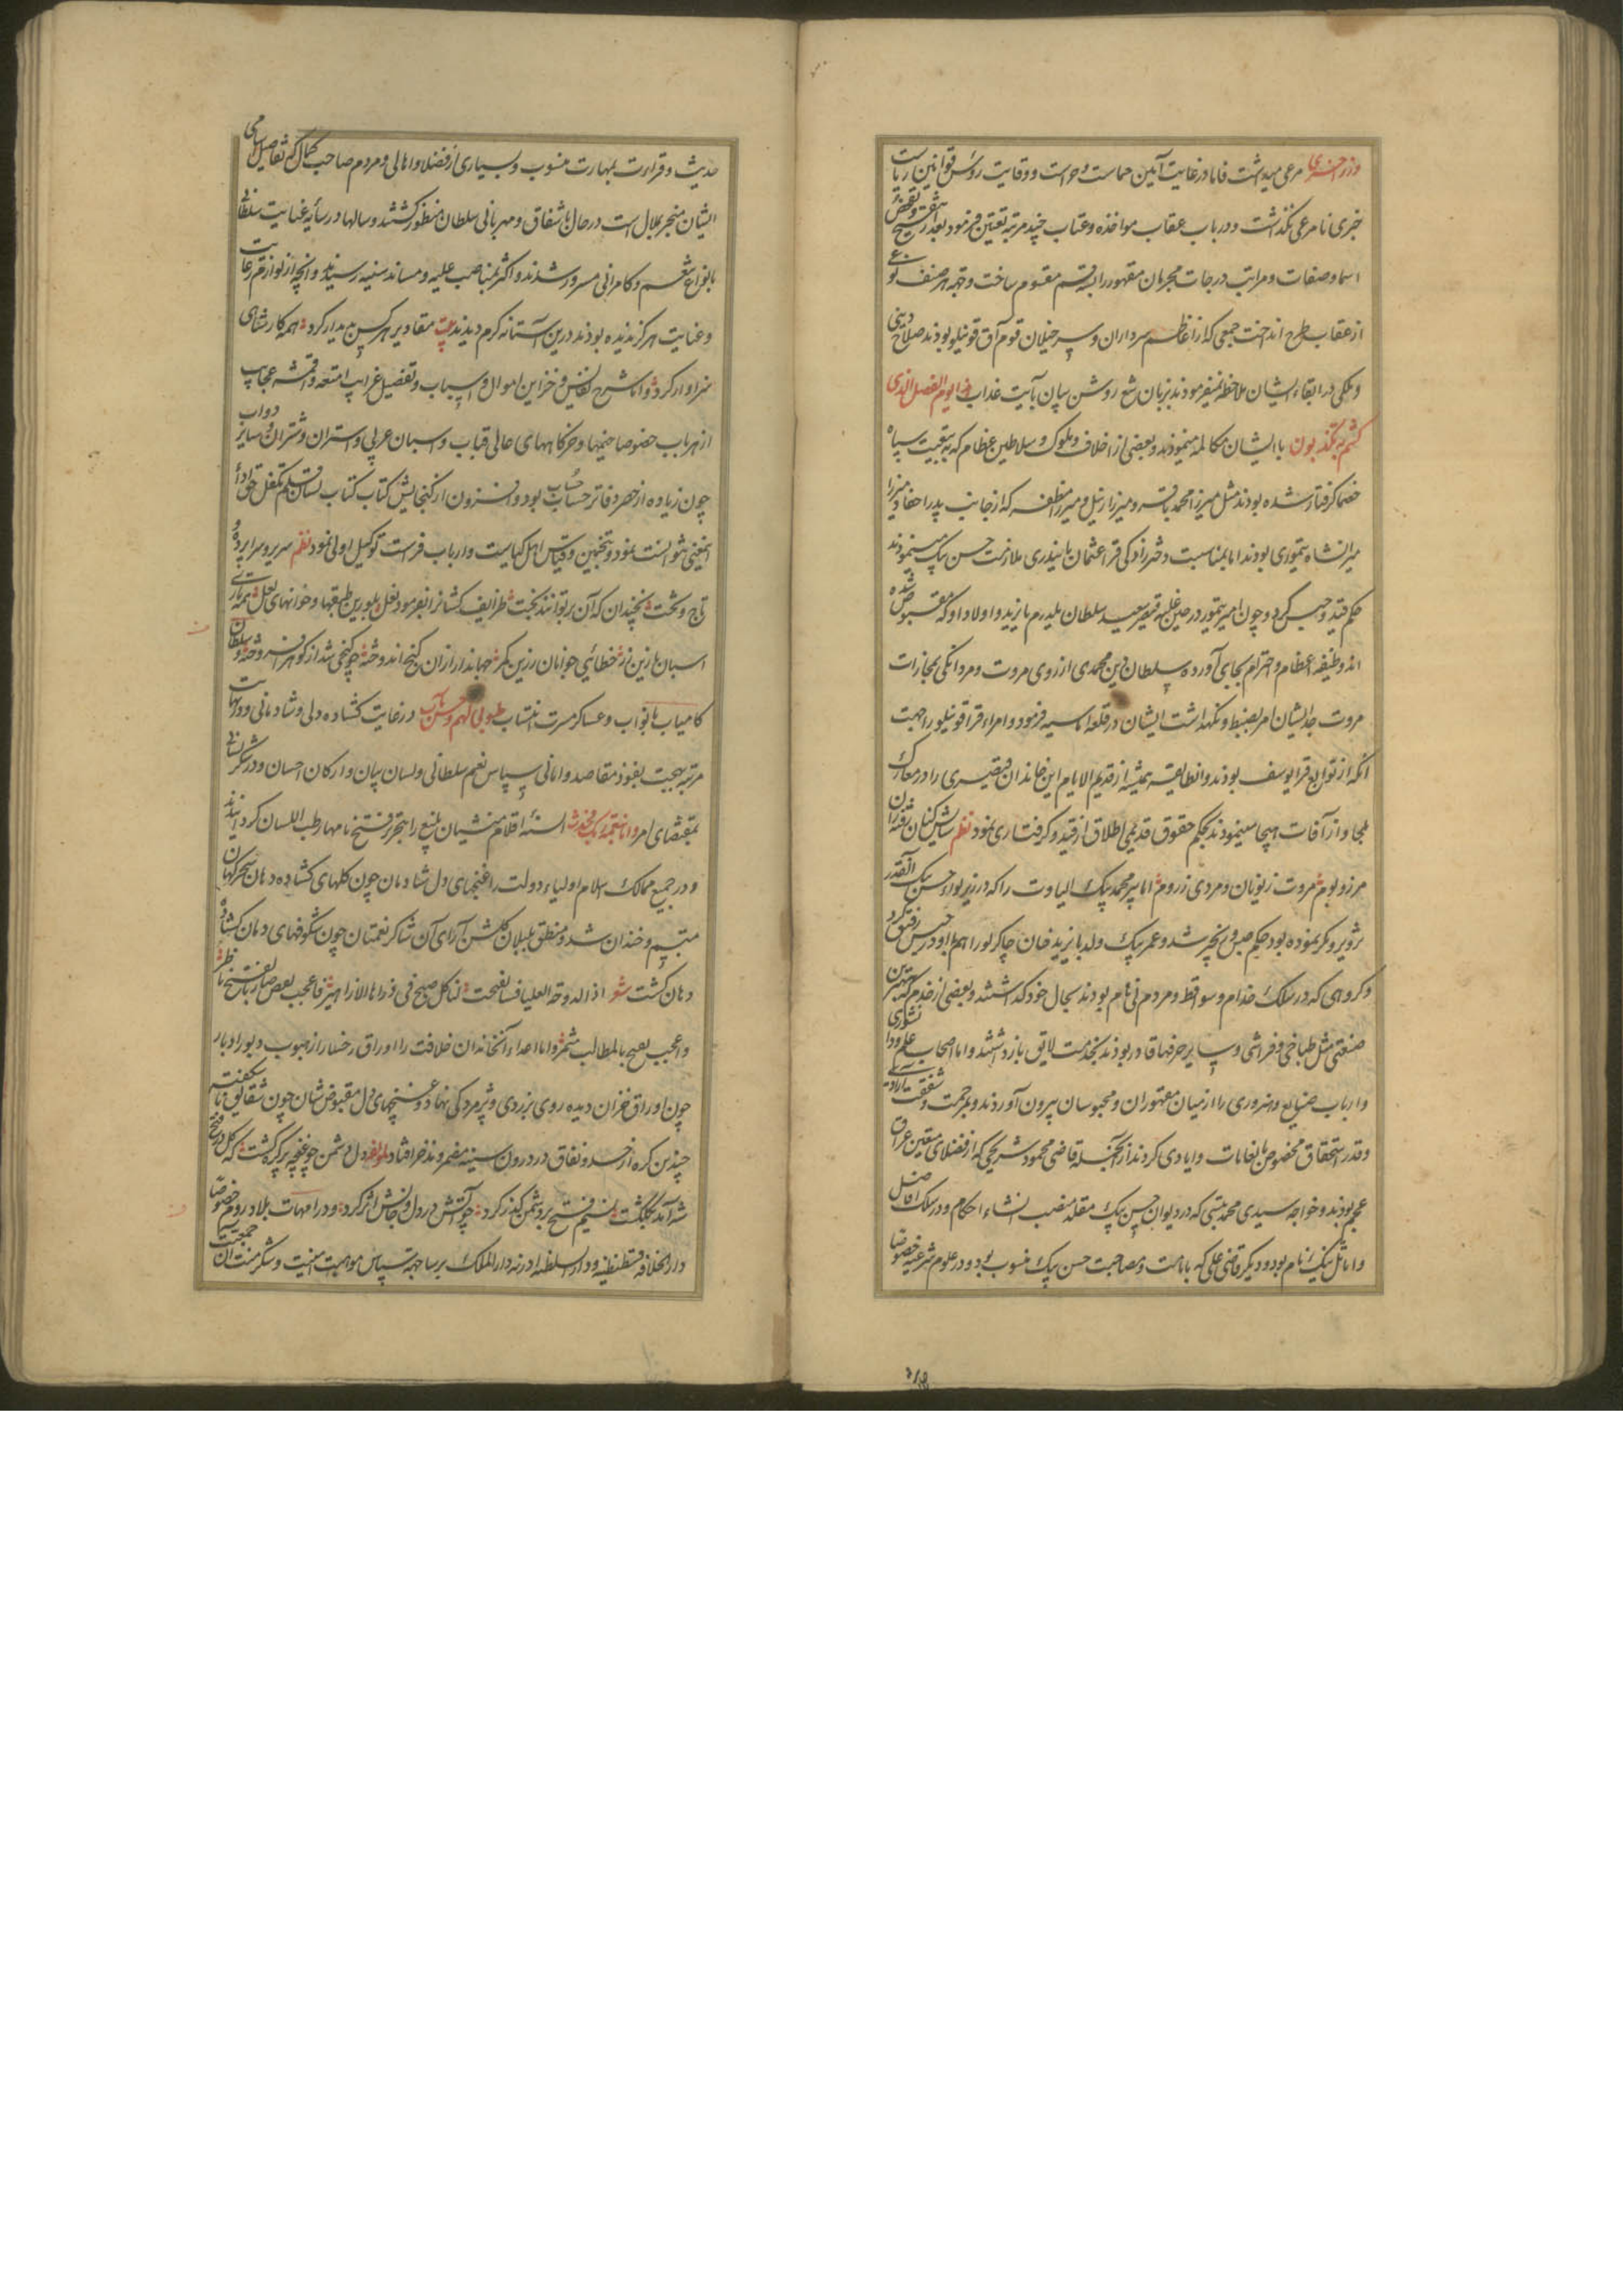 وزر اخری مرعی میداشت فاما در غایت آیین حماست و حراست و وقایت رؤس قوانین ریاست
خبری نامرعی نگذاشت و در باب عقاب مواخذه و عتاب چند مرتبه تعیین فرمود بعد از تنقیح و تفحص
اسما و صفات و مراتب درجات مجرمان مقهور را بسه قسم مقسوم ساخت و جهة هر صنف نوعی
از عقاب طرح انداخت جمعی که از اعاظم سرداران و سرخیلان قوم آق قوینلو بودند صلاح دینی
و ملکی در ابقاء ایشان ملاحظه نمیفرمودند بزبان تیغ روشن بیان بآیت عذاب هذا یوم الفصل الذی
کنتم به تکذبون با ایشان مکالمه مینمودند و بعضی از اخلاف ملوک و سلاطین عظام که به تبعیت سپاه
خصما گرفتار شده بودند مثل میرزا محمد باقر و میرزا زینل و میرزا مظفر که از جانب پدر احفاد میرزا
میرانشاه تیموری بودند اما بمناسبت دخترزادگی قرا عثمان بایندری ملازمت حسن بیک مینمودند
حکم قید و حبس کرد و چون امیر تیمور در حین غلبه قیصر سعید سلطان یلدرم بایزید و اولاد او که مقبوض شده
اند وظیفه اعظام و احترام بجای آورده سلطان دین محمدی از روی مروت و مردانگی بمجازات
مروت جد ایشان امر بضبط و نگهداشت ایشان در قلعه اماسیه فرمود و امراء قراقوینلو را جهت
آنکه از توابع قرا یوسف بودند و انطایفه همیشه از قدیم الایام این خاندان قیصری را در معارک
ملجا و از آفات منجا مینمودند بحکم حقوق قدیمی اطلاق از قید و گرفتاری نمود نظم ستایش کنان رفته زان
مرز و بوم مروت ز یونان و مردی ز روم اما پیر محمد بیک الپاوت را که در زیر لواء حسن بیک القدر
تزویر و مکر نموده بود حکم حبس و زنجیر شد و عمر بیک ولد بایزید خان چاکرلو را همراه او در حبس رفیق کرد
و گروهی که در سلک خدام و سواقط و مردم بی نام بودند بحال خود گذاشتند و بعضی از خدم که بهترین
صنعتی مثل طباخی و فراشی و سایر حرفها قادر بودند بخدمت لایق بازداشتند و اما اصحاب علم و دانشوری
و ارباب صنایع و هنروری را از میان مقهوران و محبوسان بیرون آوردند و بمرحمت و شفقت
و قدر استحقاق مخصوص بانعامات و ایادی کردند از آنجمله قاضی محمود شریحی که از فضلای متعین عراق
عجم بودند و خواجه سیدی محمد منشی که در دیوان حسن بیک مقلد منصب انشاء احکام و در سلک افاضل
و اماثل نیک نام بود و دیگر قاضی علی که بامامت و مصاحبت حسن بیک منسوب بود و در علوم شرعیه خصوصا
حدیث و قراءت بمهارت منسوب و بسیاری از فضلا و اهالی و مردم صاحب کمال که تفاصیل اسامی
ایشان منجر بملال است در حال باشفاق و مهربانی سلطان منظور گشتند و سالها در سایه عنایت سلطانی
بانواع تنعم و کامرانی مسرور شدند و اکثر بمناصب علیه و مساند سنیه رسیدند و انچه از لوازم رعایت
و عنایت هرگز ندیده بودند درین آستانه کرم دیدند بیت مقادیر هر کس پدیدار کرد همه کارشان
سزاوار کرد و اما شرح نفایس و خزاین اموال و اسباب و تفصیل غرایب امتعه و اقمشه عجایب
از هر باب خصوصا خیمها و خرگاههای عالی قباب و اسبان عربی و استران و شتران و سایر دواب
چون زیاده از حصر دفاتر حساب بود و افزون از گنجایش کتاب کتاب لسان قلم تکفل حق اداء
انمعنی نتوانست نمود و بتخمین و قیاس اهل کیاست و ارباب فراست توکیل اولی نمود نظم سریر و سراپرده
تاج و تخت نچندان که آن بر توانند بخت ظرایف کشانرا نفرمود نعل بلورین طبقها و خوانهای لعل همه تازی
اسبان با زین زر خطائی جوانان زرین کمر جهاندار ازان گنج اندوخته چو گنجی شد از گوهر افروخته و سلطان
کامیاب با نواب و عساکر مسرت انتساب طوبی لهم و حسن مآب در غایت گشاده دلی و شادمانی و در نهایت
مرتبه بهجت بنفوذ مقاصد و امانی سپاس نعم سلطانی و لسان بیان و ارکان احسان و در شکرستانی
بمقتضای امر و اما بنعمة ربک فحدث السنه اقلام منشیان بلیغ را بتحریر فتح نامها رطب اللسان گردانیدند
و در جمیع ممالک اسلام اولیاء دولت را غنچهای دل شادمان چون گلهای گشاده دهان سحرگهان
متبسم و خندان شد و منطق بلبلان گلشن آرای آن شاکر نعمتان چون شکوفهای دهان گشاده
دهان گشت شعر
و اعجب بصبح بالمطالب مثمر و اما اعداء آنخاندان خلافت را اوراق رخسار از هبوب دبور ادبار
چون اوراق خزان دیده روی بزردی و پژمردگی نهاد و غنچهای دل مقبوض شان چون شقایق ناشکفته
چندین گره از حسد و نفاق در درون سینه مضمر و مدخر افتاد لمؤلفه دل دشمن چو غنچه پر گره گشت که گل در فتح
شه آمد بگلگشت نسیم فتح بر دشمن گذر کرد چو آتش در دل و جانش اثر کرد و در امهات بلاد روم خصوصا
دار الخلافه قسطنطنیه و دار السلطنه ادرنه دار الملک برسا جهة سپاس مواهبت امنیت و شکر منت آن جمعیت